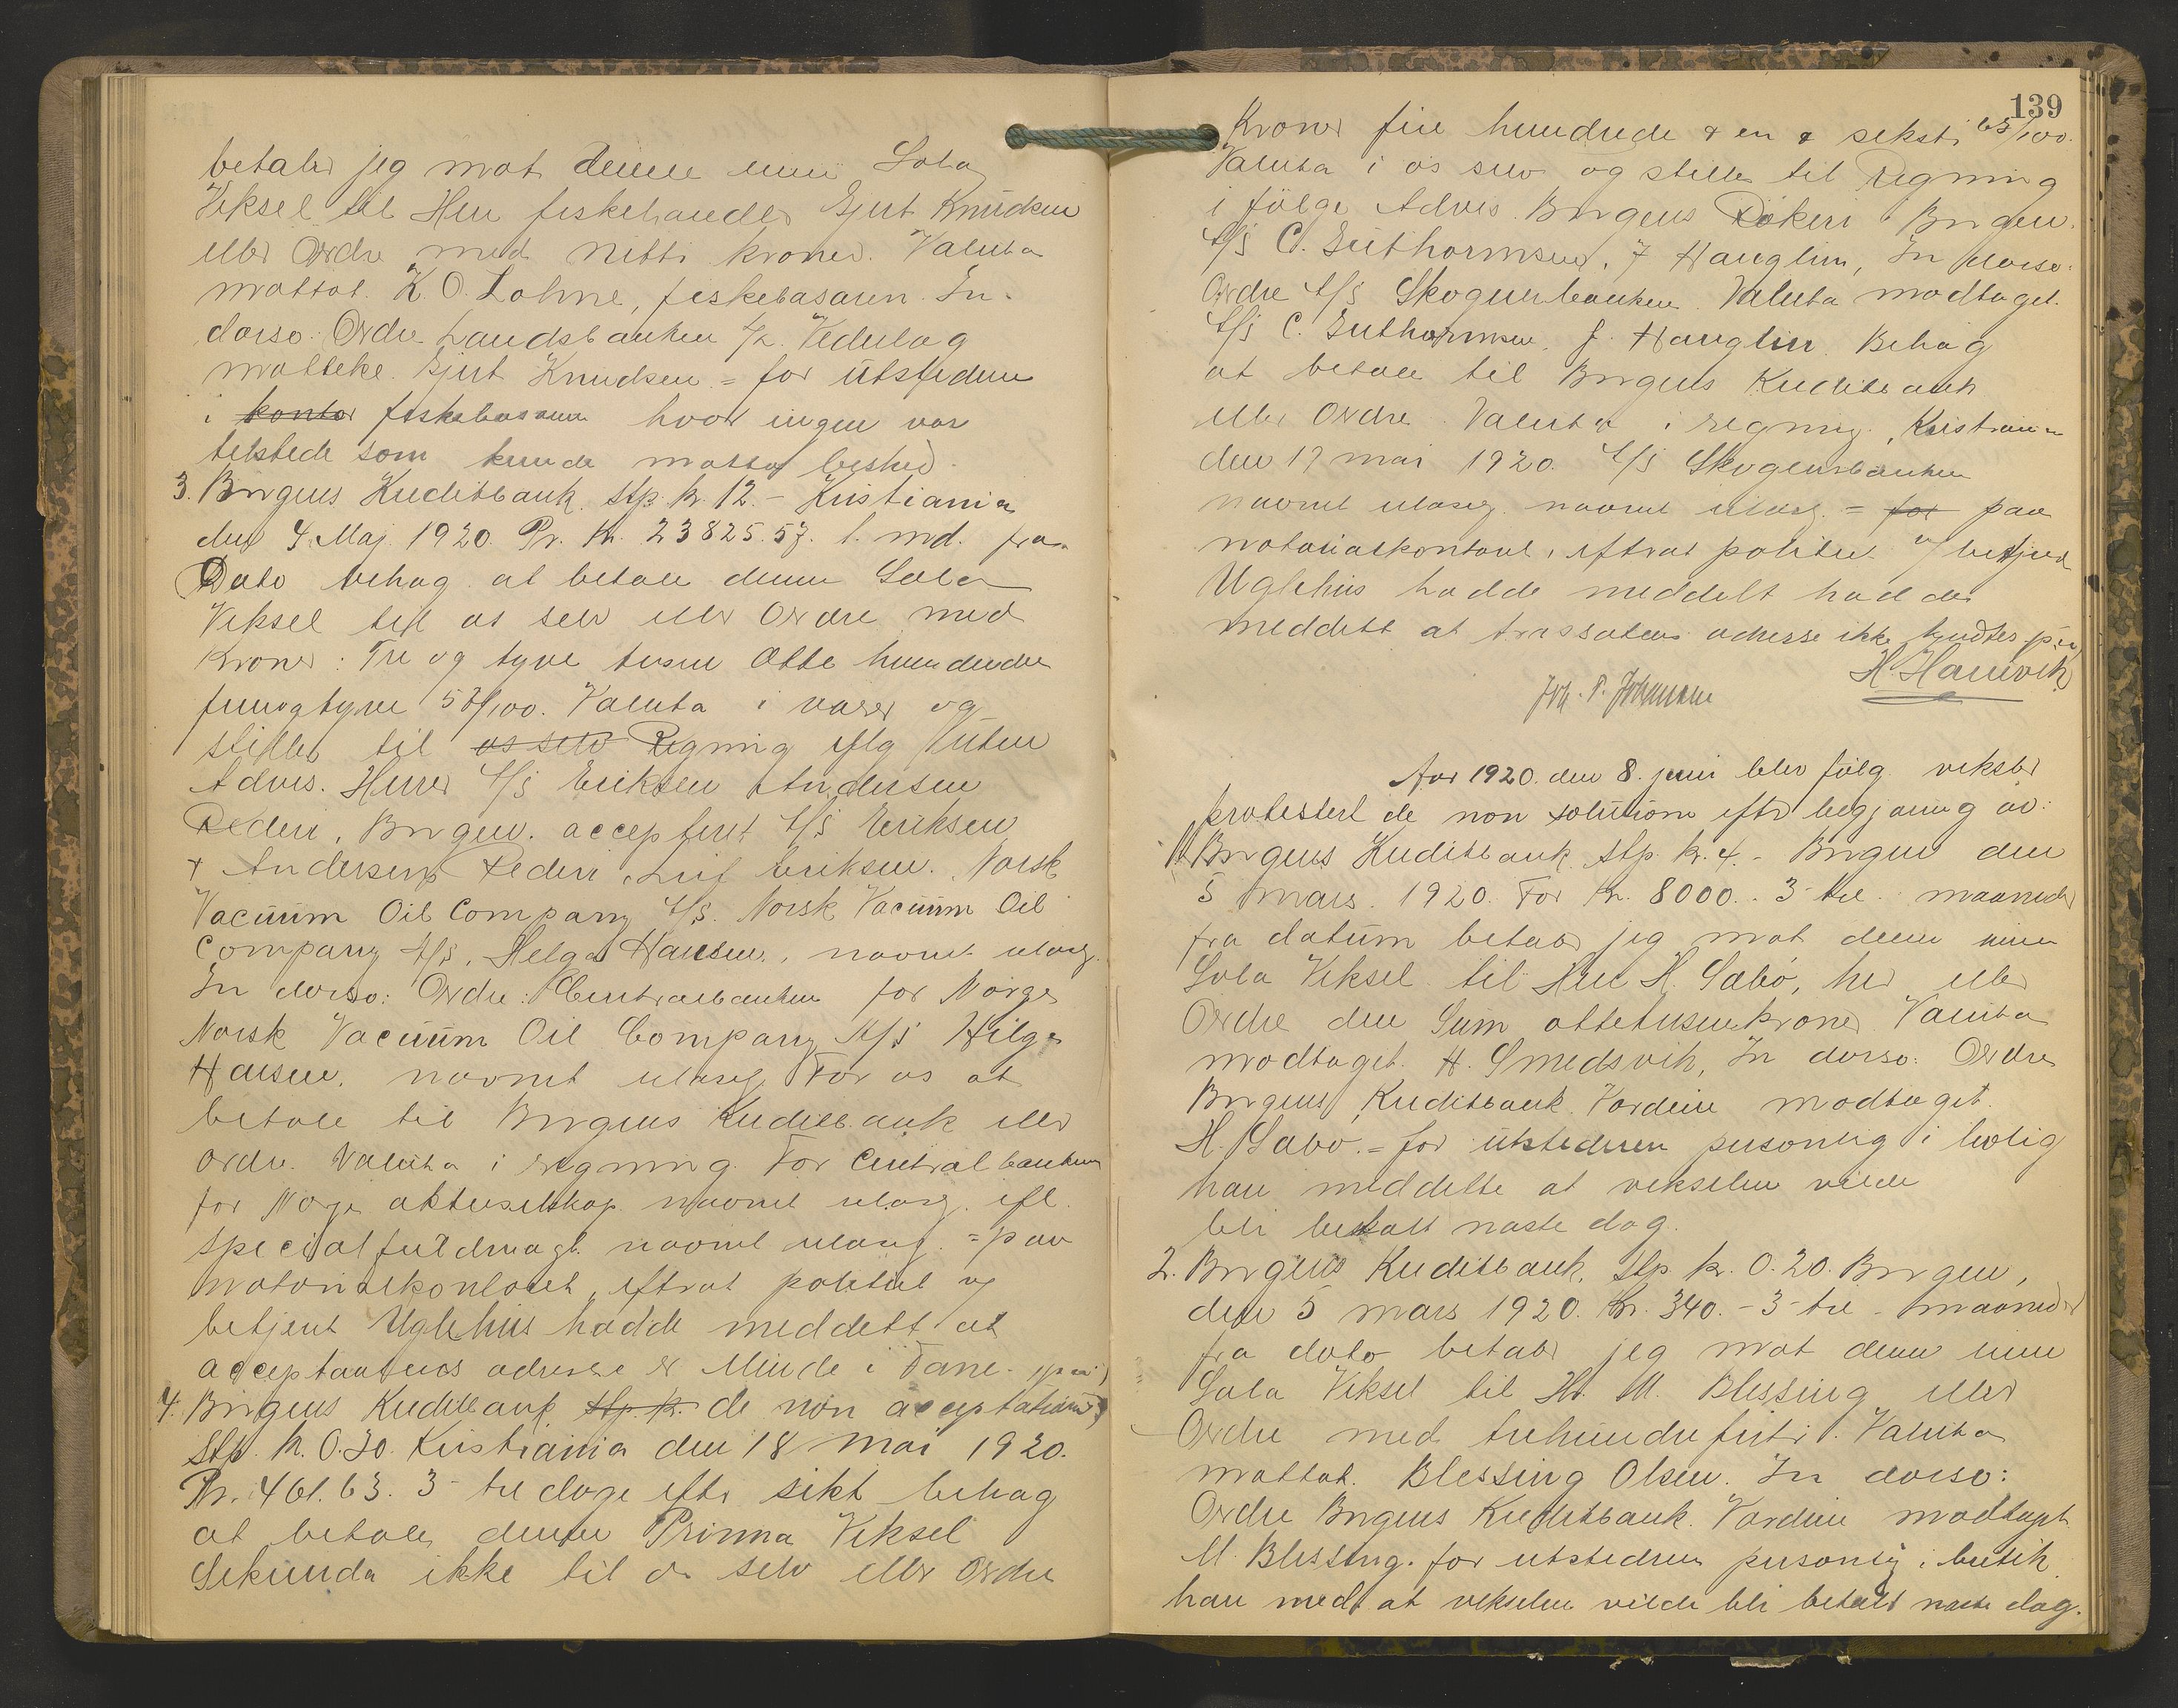 betaler jeg mot denne min Sola
Veksel til Herr fiskehandler Gjert Knudsen
eller Ordre med nitti kroner. Valuta
mottat. K. O. Lohne, fiskebasaren. In
dorso: Ordre Landsbanken A/L. Vederlag
motteke. Gjert Knudsen = for utstederen
i kontor fiskebasaren hvor ingen var
tilstede som kunde motta beskjed.
3. Bergens Kreditbank. Stp. kr. 12.- Kristiania
den 4. Maj 1920. Pr. Kr. 23825.57. 1. md. fra
Dato behag at betale denne Sola
Veksel til os selv eller Ordre med
Kroner: Tre og tyve tusen Otte hundrede
femogtyve 57/100. Valuta i varer og
stilles til os selv Regning iflg uten
Advis. Herrer A/S Eriksen Andersen
Rederi, Bergen. accepteret A/S Eriksen
& Andersens Rederi, Leif Eriksen. Norsk
Vacuum Oil Company A/S. Norsk Vacuum Oil
Company A/S, Helga Hansen, navnet ulæsg.
In dorso: Ordre: Centralbanken for Norge
Norsk Vacuum Oil Company A/S Helga
Hansen. navnet ulæsg. For os at
betale til Bergens Kreditbank eller
ordre. Valuta i regning. For Centralbanken
for Norge aktieselskap navnet ulæsg. ifl.
specialfuldmagt. navnet ulæsg. = paa
notarialkontoret, efterat politiet ved
betjent Uglehus hadde meddelt at
acceptantens adresse er Minde i Fane.
4. Bergens Kreditbank Stp. kr. de non acceptatione
Stp. kr. 0.30. Kristiania den 18 mai 1920.
Kr. 461.63. 3- tre dage efter sikt behag
at betale denne Prima Veksel
Sekunda ikke til os selv eller Ordre
139
Kroner fire hundrede & en & seksti 63/100.
Valuta i os selv og stilles til Regning
i følge Advis. Bergens Røkeri Bergen.
A/S C. Guthormsen, J Hauglin, In dorso:
Ordre A/S Skogeierbanken. Valuta modtaget.
A/S C. Guthormsen. J. Hauglin. Behag
at betale til Bergens Kreditbank
eller Ordre. Valuta i regning. Kristiania
den 19 mai 1920. A/S Skogeierbanken
navnet ulæsg. navnet ulæsg. = for paa
notarialkontoret, efterat politiet v/ betjent
Uglehus hadde meddelt hadde
meddelt at trassatens adresse ikke fandtes.
H. Hamvik
Joh. P. Johnsen
Aar 1920. den 8. juni blev følg. veksler
protestert de non solutione efter begjæring av:
1. Bergens Kreditbank. Stp. kr. 4.- Bergen den
5 mars. 1920. For Kr. 8000.. 3- tre- maaneder
fra datum betaler jeg mot denne min
Sola Veksel til Herr H. Sabø, her eller
Ordre den Sum ottetusenkroner Valuta
modtaget. H. Smedsvik, In dorso: Ordre
Bergens Kreditbank. Værdien modtaget.
H. Sabø. = for utstederen personlig i bolig
han meddelte at vekselen vilde
bli betalt næste dag.
2. Bergens Kreditbank, Stp. kr. 0.20. Bergen,
den 5 mars 1920. Kr. 340.- 3- tre- maaneder
fra dato betaler jeg mot denne min
Sola Veksel til Hr. M. Blessing eller
Ordre med trehundrefirti. Valuta
mottat. Blessing Olsen. In dorso:
Ordre Bergens Kreditbank. Værdien modtaget
M. Blessing. for utstederen personlig i butik.
han med. at vekselen vilde bli betalt næste dag.